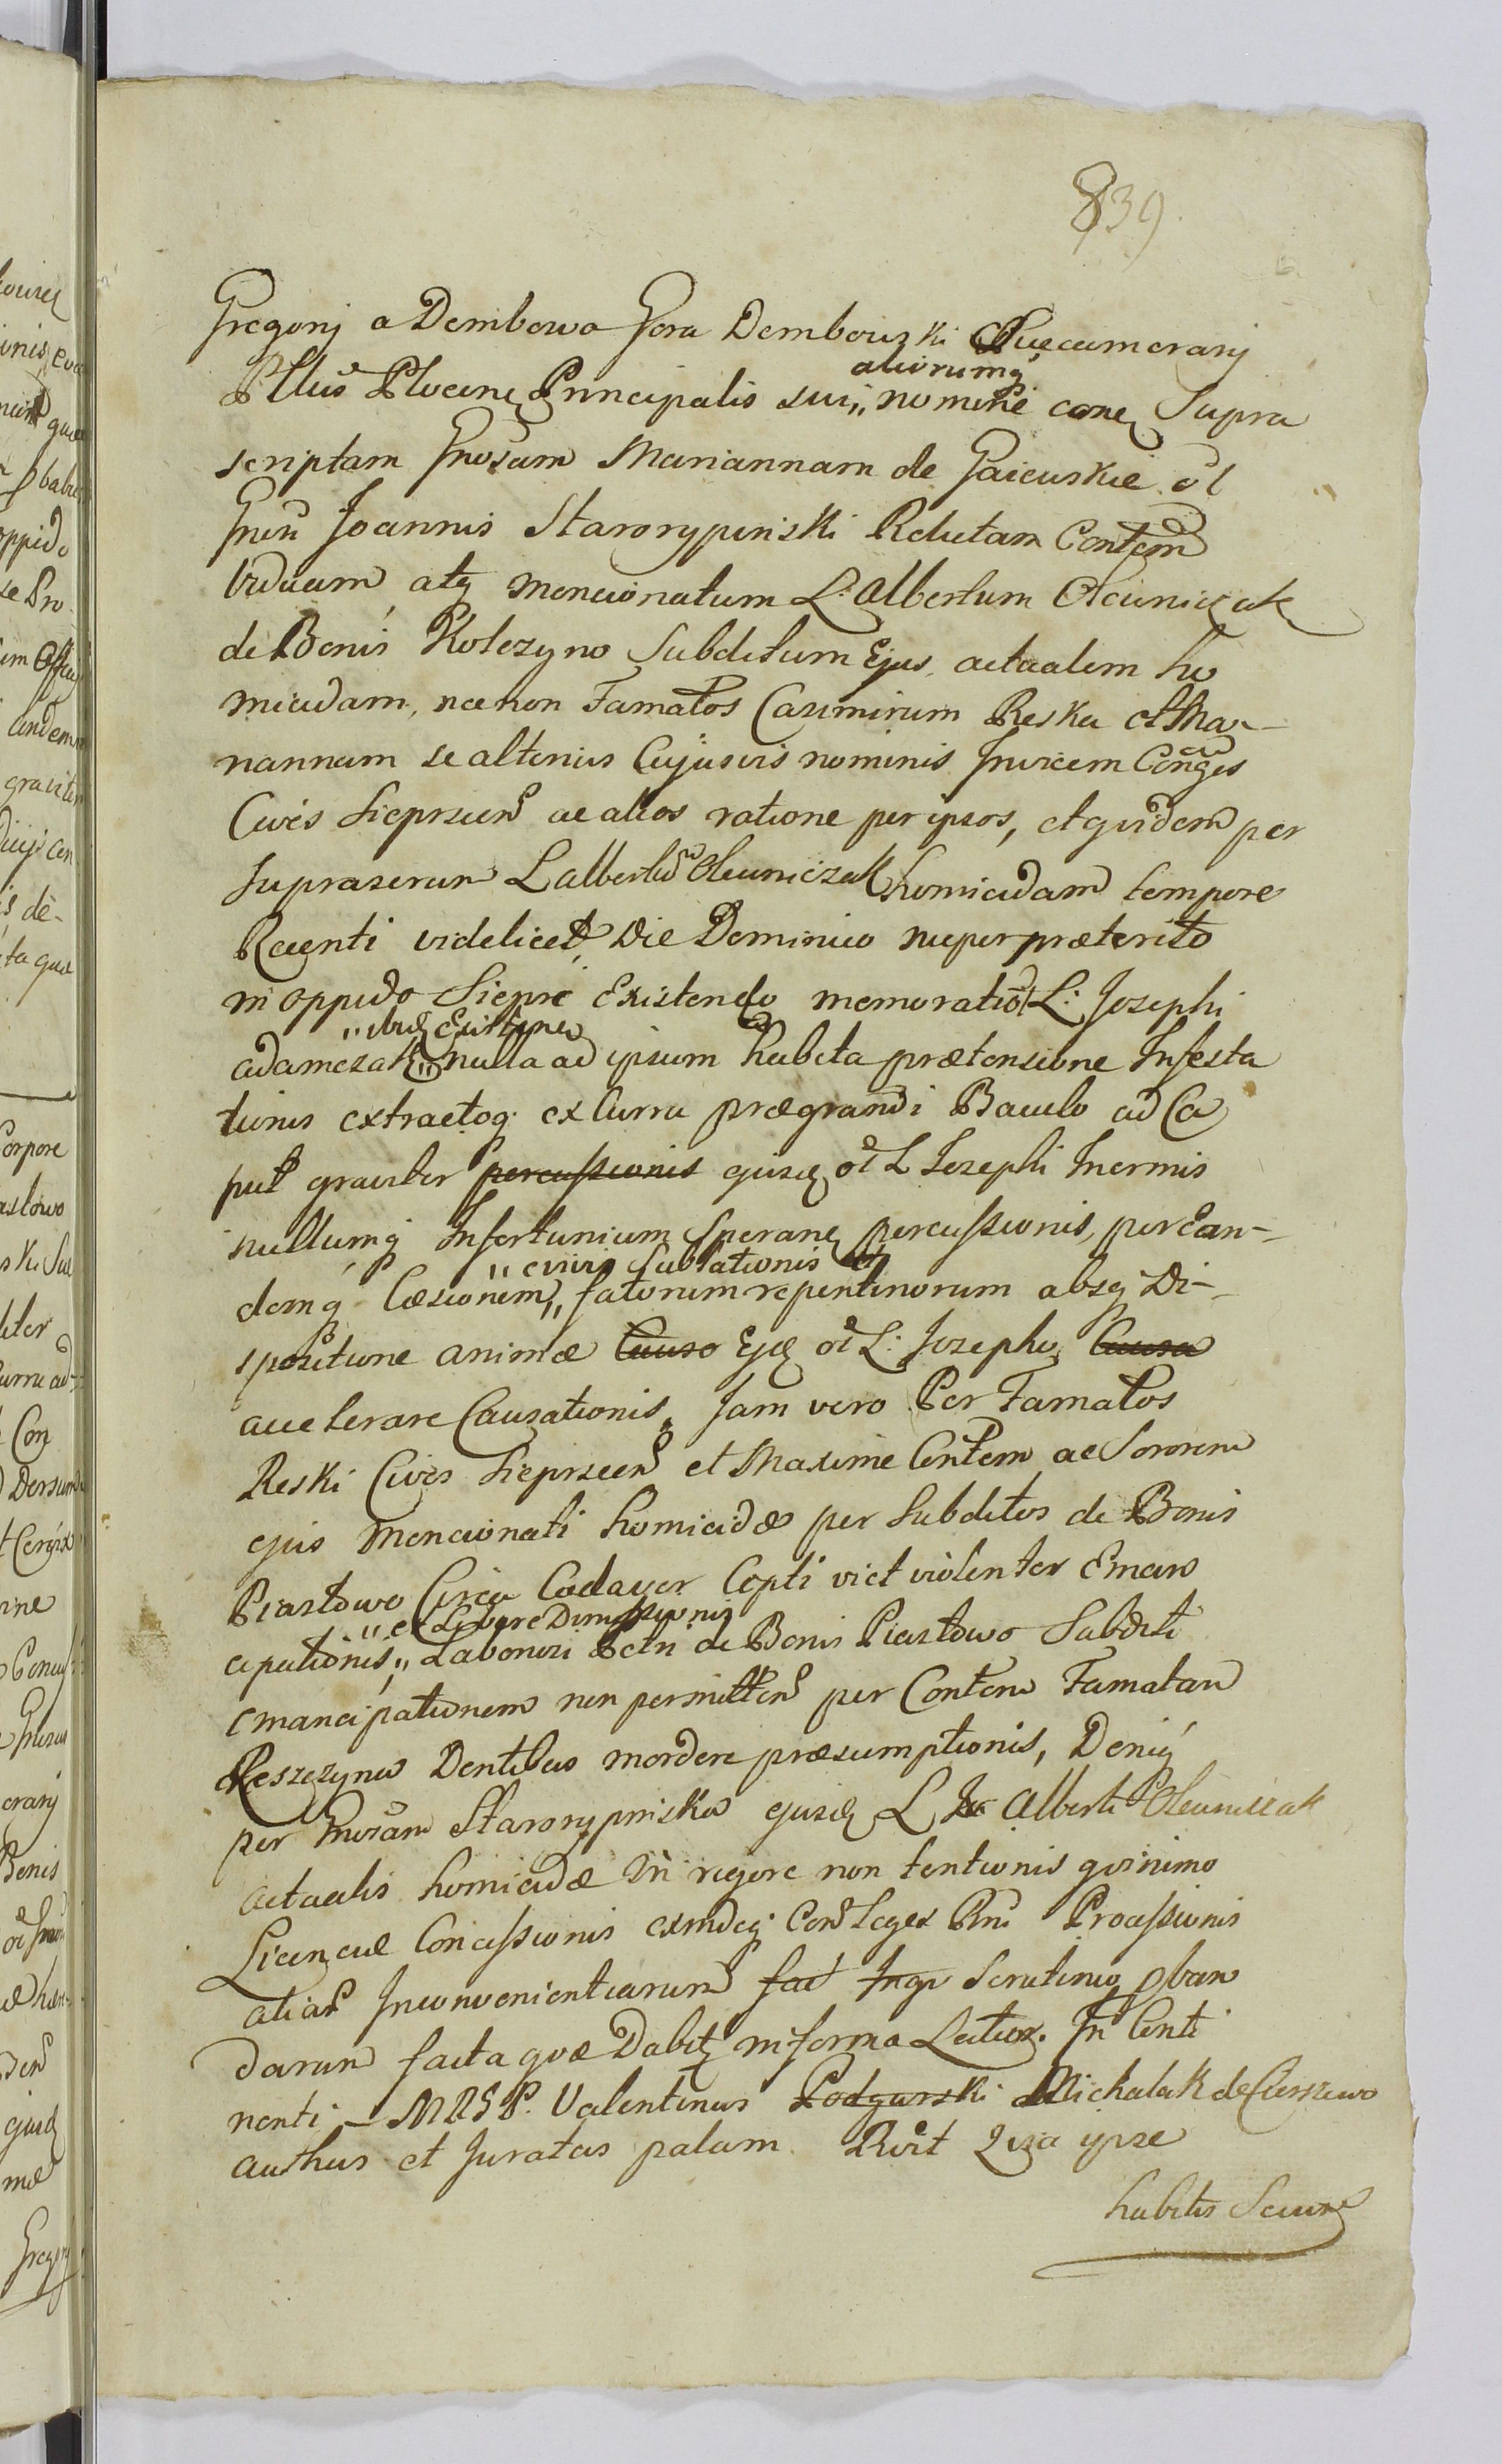 839.
Gregorij a Dembowa Gora Dembowski Succamerarij
Pllus Plocen Principalis sui „ aliorumq nomine cone Supra
scriptam Gnosam Mariannam de Gaiewskie ol
Gnsi Joannis Starorypinski Relictam Contem
Viduam atq mencionatum L. Albertum Oleuniczak
de Bonis Kolczyno Subditum Ejus actualem ho
micidam, necnon Famatos Casimirum Reska et Mar-
nannam se alterius Cujusvis nominis Invicem Conges
Cives Sieprscens ac alios ratione per ipsos, et quidem per
suprascrum L albertum Oleuniczak homicidam tempore
Recenti videlicet, Die Dominico nuper præterito
in oppido Siepre Existendo memorati ol L. Josephi
adamczak „ ibidq Existenw nulla ad ipsum habita prætensione Infesta
tionis extractoq ex Curru prægrandi Baculo ad Ca
put graviter percussionis ejusq ol L Jozephi Inermis
nullumq Infortunium Speranq percussionis, per Ean-
demq Cæsionem „ e vivis Sublationis fatorum repentinorum absq Di-
spositione animæ Causo Ejq ol L. Jozepho Causa
accelerare Causationis, Jam vero Per Famatos
Reski Cives Sieprscens et Maxime Contem ac Sororem
ejus mencionati homicidæ per Subditos de Bonis
Piastowo Circa Cadaver Capti vict violenter Eman
cipationis „ et Libere Dimissionis Laboriosi Petri de Bonis Piastowo Subditi
emancipationem non permitten per Contem Famatam
Reszczyna Dentibus mordere præsumptionis, Deniq
per Gnosam Starorypinska ejusq L Jo Alberti Oleuniczak
actualis homicidæ in rigore non tentionis quinimo
Licenciæ Concessionis exindeq Con Leges Rni Processionis
aliar Inconvenientiarum fac Inqr Scrutinio pban
darum facta quæ Dabitq in forma Lation. In Conti
nenti – MRSP. Valentinus Podgurski Michalak de Cierszewo
authus et Juratus palam Rvit Quia ipse
habitis Secum